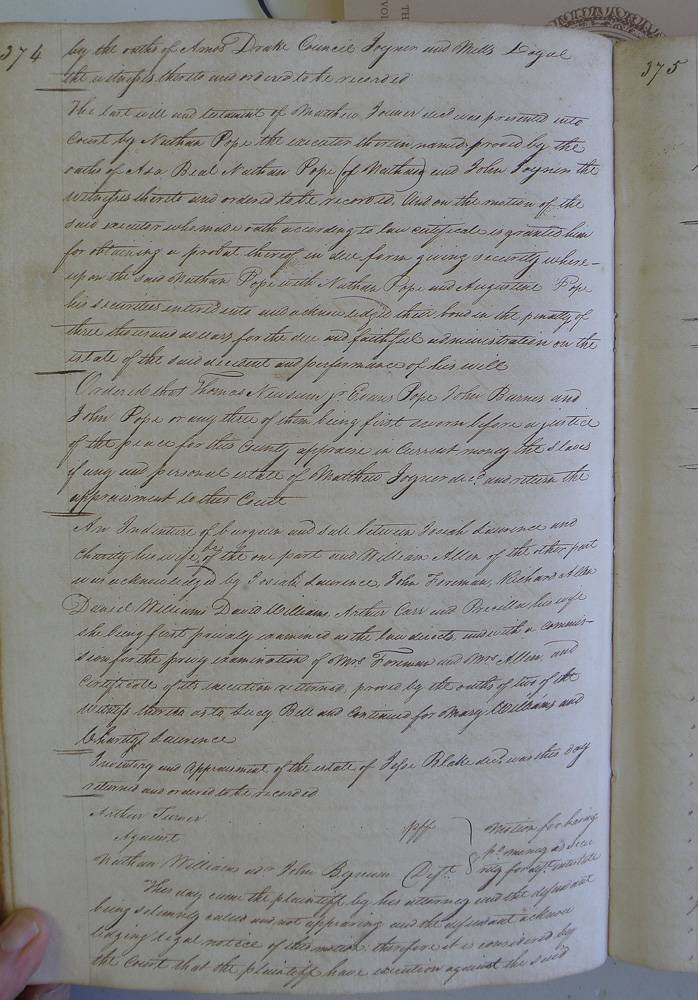 374
by the oaths of Amos Drake Council Joyner and Mills Loyal
the witnesses thereto and ordered to be recorded
The last will and testament of Matthew Joyner decd was presented into
Court by Nathan Pope the executor therein named proved by the
oaths of Asa Beal Nathan Pope (of Nathan) and John Joyner the
witnesses thereto and ordered to be recorded. And on the motion of the
said executor who made oath according to law certificate is granted him
for obtaining a probat thereof in due form giving security where-
upon the said Nathan Pope with Nathan Pope and Augustine Pope
his securities entered into and acknowledged their bond in the penalty of
three thousand dollars for the due and faithful administration on the
estate of the said decedent and performance of his will
Ordered that Thomas Newsum jr Evans Pope John Barnes and
John Pope or any three of them being first sworn before a justice
of the peace for this County appraise in Current money the slaves
if any and personal estate of Matthew Joyner decd. and return the
appraisment to this Court
An Indenture of bargain and sale between Josiah Laurence and
Charity his wife &c of the one part and William Allen of the other part
was acknowledged by Josiah Laurence, John Foreman, Richard Allen
Daniel Williams David Williams, Arthur Carr and Priscilla his wife
she being first privily examined as the law directs, and with a commis-
sion for the privy examination of Mrs Foreman and Mrs Allen, and
Certificate of its execution returned, proved by the oaths of two of the
witness thereto as to Lucy Bell and Continued for Mary Williams and
Charity Laurence
Inventory and Appraisment of the estate of Jesse Blake decd. was this day
returned and ordered to be recorded
Arthur Turner
plff
Against
Nathan Williams adr John Bynum Deft.
Motion for being
pd. money as secu
rity for deft. intestate
This day came the plaintiff by his attorney and the defendant
being solemnly called and not appearing and the defendant acknow
ledging legal notice of this motion; therefore it is considered by
the Court that the plaintiff have execution against the said
375